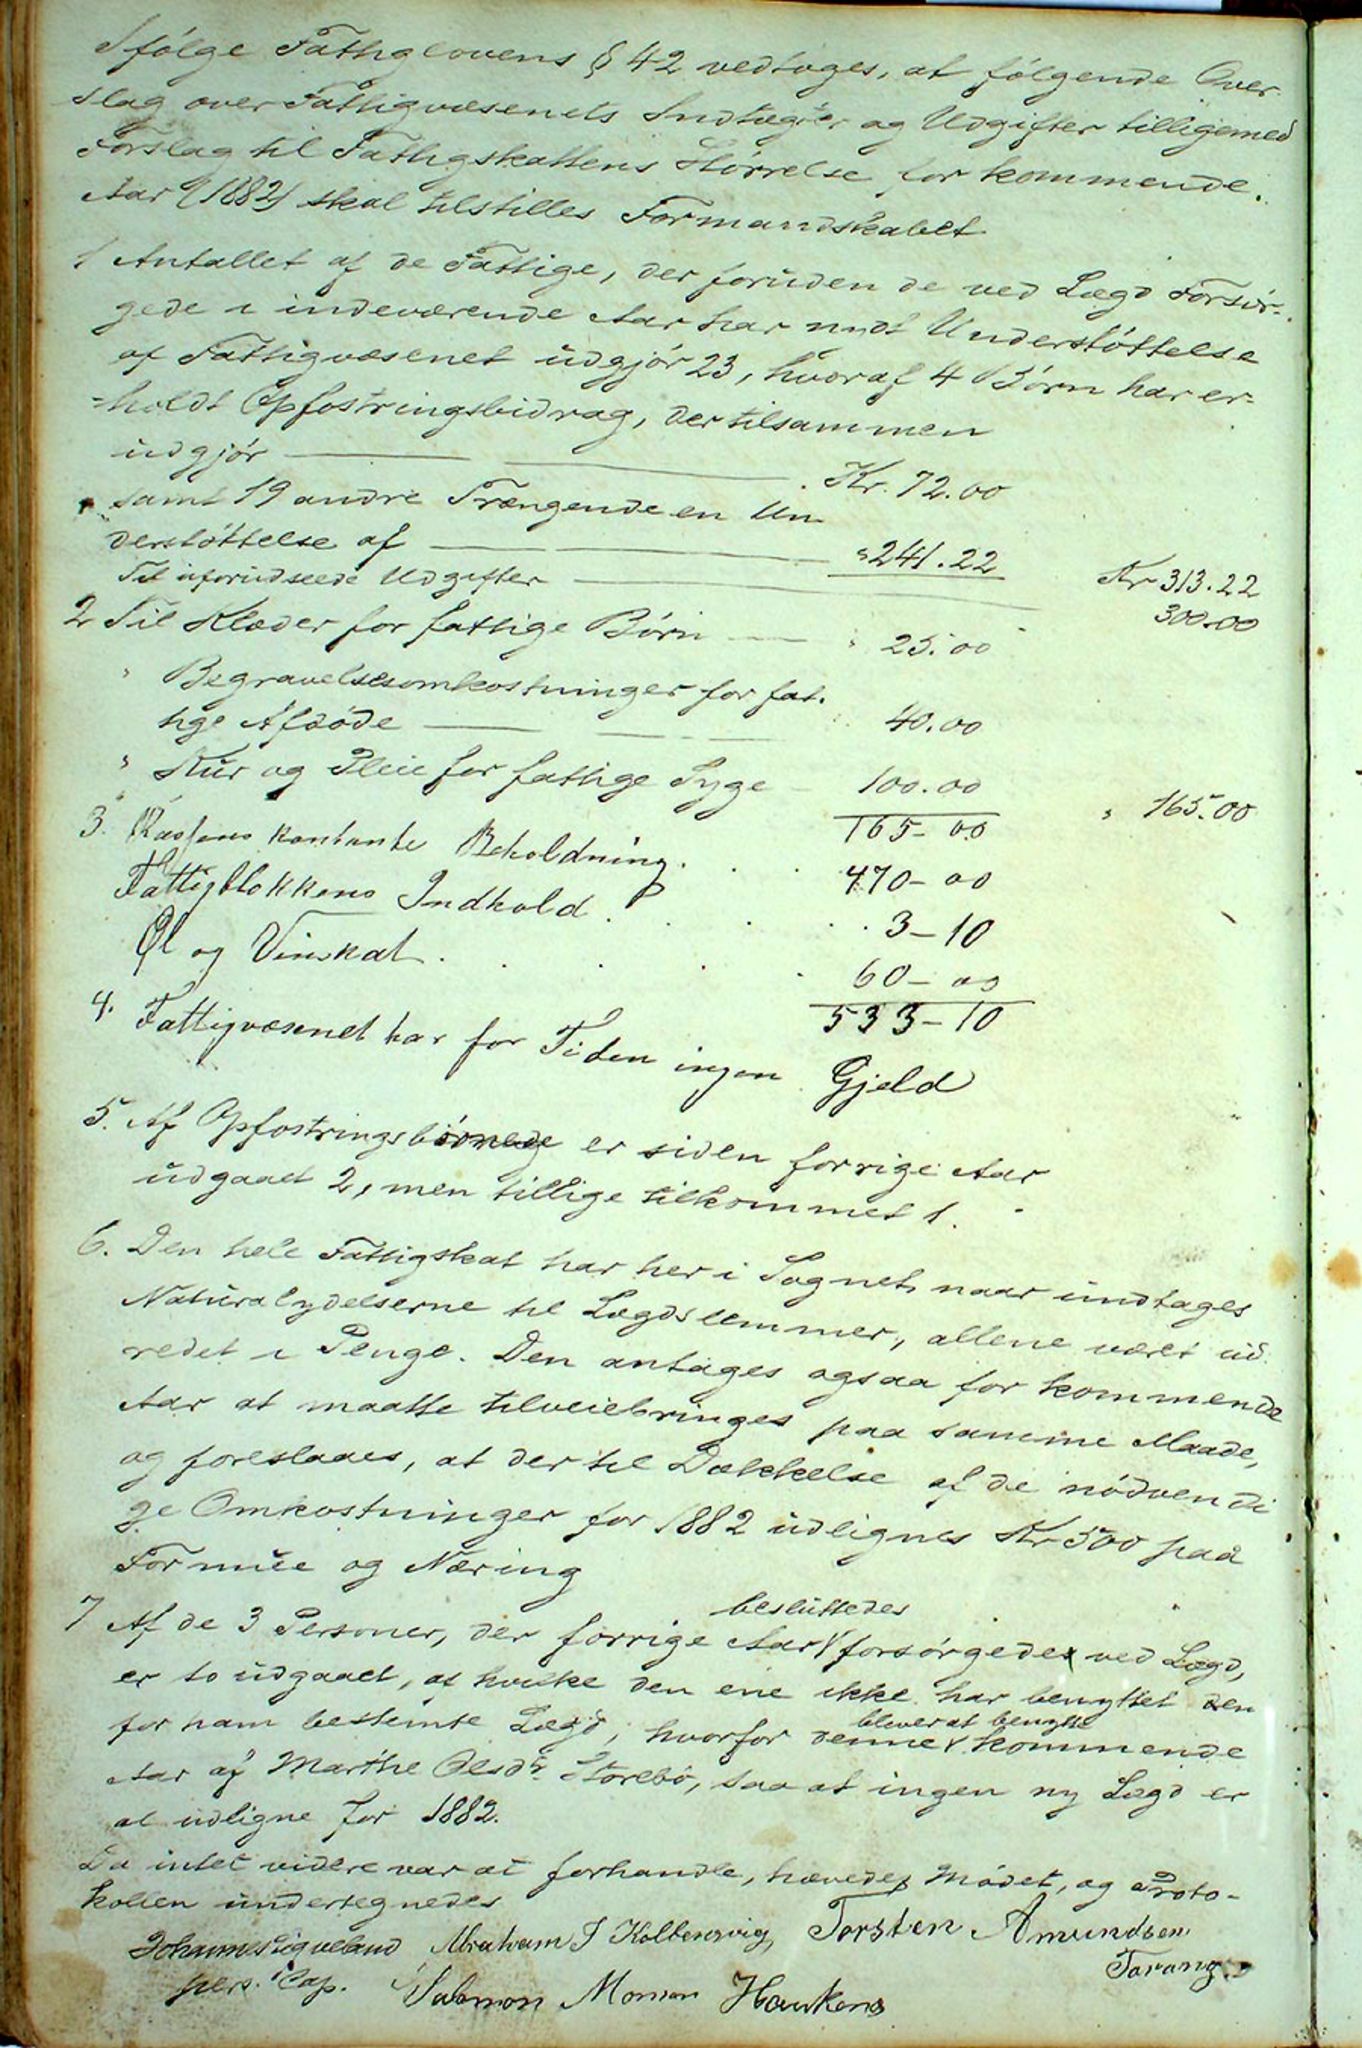 Ifølge Fattiglovens § 42 vedtoges, at følgende Over
slag over Fattigvæsenets Indtægter og Udgifter tilligemed
Forslag til Fattigskattens Størrelse for kommende
Aar (1882) skal tilstilles Formandskabet
1 Antallet af de Fattige, der foruden de ved Lægd Forsør-
gede i indeværende Aar har nydt Understøttelse
af Fattigvæsenet udgjør 23, hvoraf 4 Børn har er-
=holdt Opfostringsbidrag, der tilsammen
udgjør Kr. 72.00
samt 19 andre Trængende en Un
derstøttelse af " 241.22 Kr 313.22
Til uforudseede Udgifter 300.00
2 Til Klæder for fattige Børn " 25.00
" Begravelsesomkostninger for fat.
tige Afdøde " 40.00
" Kur og Pleie for fattige Syge 100.00
165-00 " 165.00
3. Kassens kontante Beholdning . . 470-00
Fattigblokkens Indhold . . . . 3-10
Øl og Vinskat . . . . . 60-00
533-10
4. Fattigvæsenet har for Tiden ingen Gjeld
5. Af Opfostringsbørnene er siden forrige Aar
udgaaet 2, men tillige tilkommet 1.
6. Den hele Fattigskat har her i Sognet, naar undtages
Naturalydelserne til Lægdslemmer, allene været ud
redet i Penge. Den antages ogsaa for kommende
Aar at maatte tilveiebringes paa samme Maade,
og foreslaaes, at der til Dækkelse af de nødvendi
ge Omkostninger for 1882 udlignes Kr 500 paa
Formue og Næring
7 Af de 3 Personer, der forrige Aar besluttedes forsørgede ved Lægd,
er to udgaaet, af hvilke den ene ikke har benyttet den
for ham bestemte Lægd, hvorfor denne bliver at benytte kommende
Aar af Marthe Olsdr. Storebø, saa at ingen ny Lægd er
at udligne for 1882.
Da intet videre var at forhandle, hævedes Mødet, og Proto-
kollen undertegnedes
Johannes Ligvelund Abraham J Kolbensvig Torsten Amundsen
pers. Cap. Salomon Monsen Haukenes Torang.